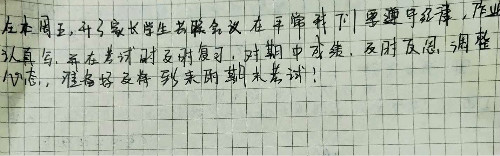 在本周五,开了家长学生共联会议 在平常我们要遵守纪律,作业
认真写,并在考试时及时复习,对期中成绩,及时反思,调整
心态,准备好反将到来的期末考试!